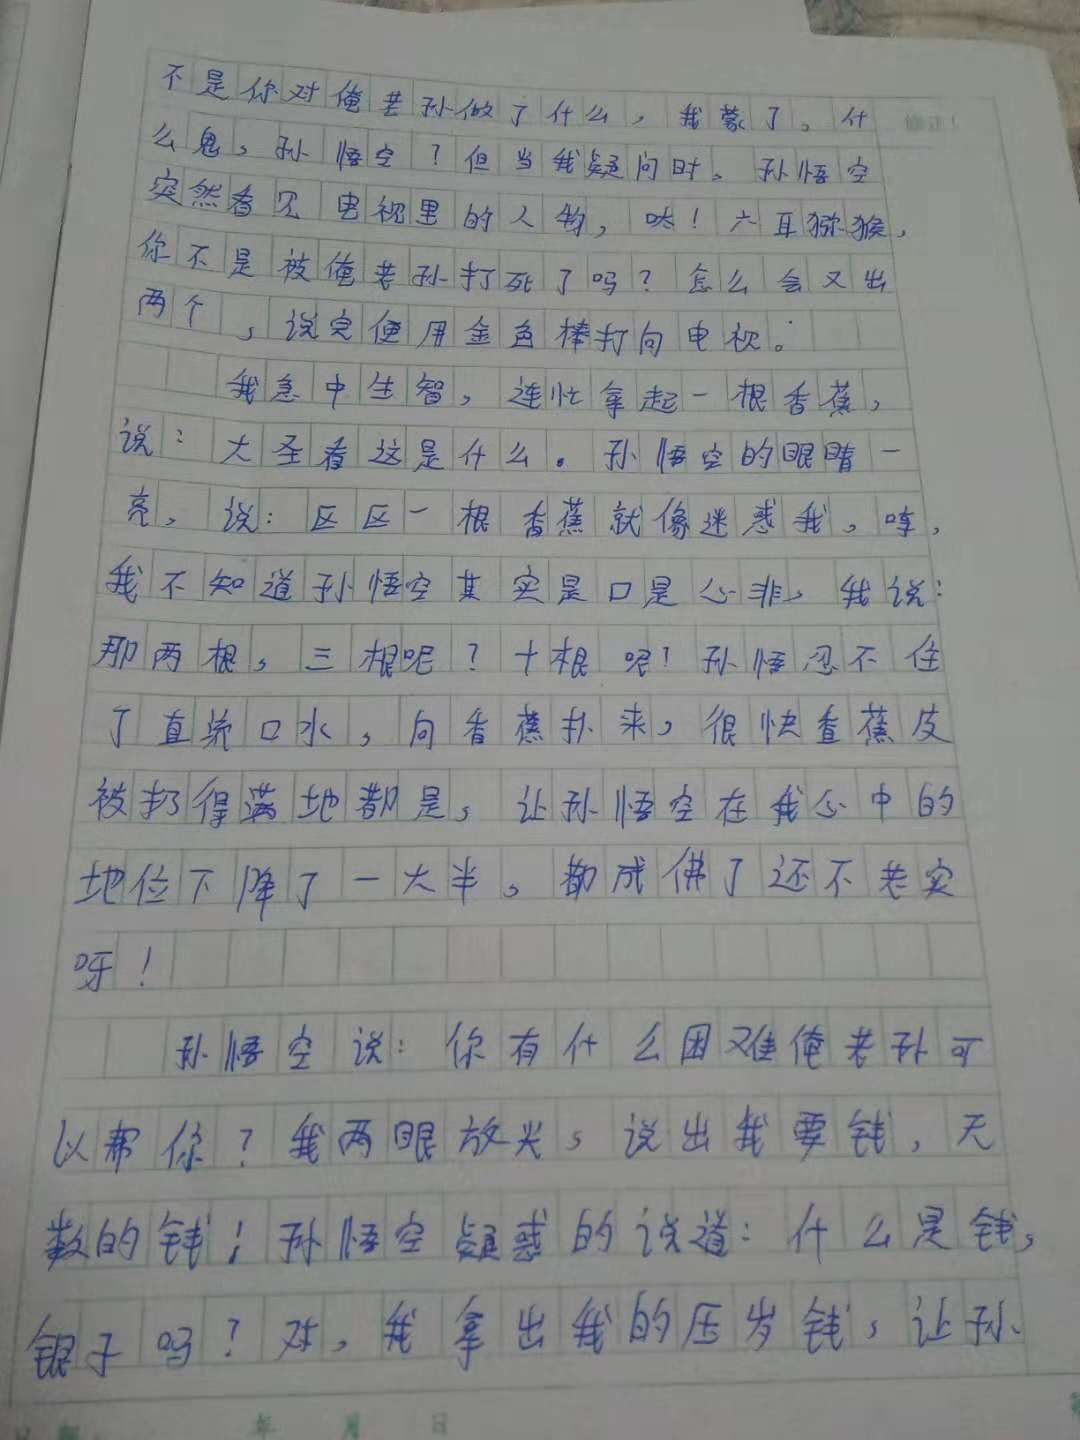 不是你对俺老孙做了什么，我蒙了。什
么鬼，孙悟空？但当我疑问时。孙悟空
突然看见电视里的人物，呔！六耳猕猴，
你不是被俺老孙打死了吗？怎么会又出
两个，说完便用金色棒打向电视。
我急中生智，连忙拿起一根香蕉，
说：大圣看这是什么。孙悟空的眼睛一
亮，说：区区一根香蕉就像迷惑我，哼，
我不知道孙悟空其实是口是心非，我说：
那两根，三根呢？十根呢？孙悟忍不住
了直流口水，向香蕉扑来，很快香蕉皮
被扔得满地都是，让孙悟空在我心中的
地位下降了一大半。都成佛了还不老实
呀！
孙悟空说：你有什么困难俺老孙可
以帮你？我两眼放光，说出我要钱，无
数的钱！孙悟空疑惑的说道：什么是钱，
银子吗？对，我拿出我的压岁钱，让孙
年 月 日